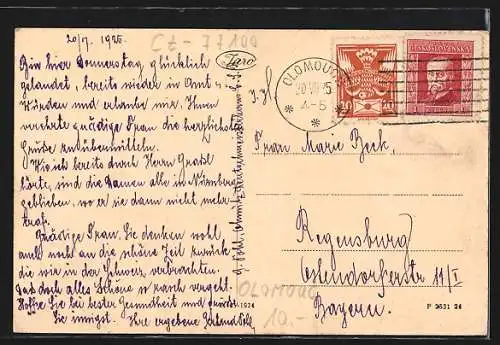 20/7. 1925.
Cz-77100
Bin hier Donnerstag glücklich
gelandet, bereits wieder in Amt u.
Würden und erlaube mir, Ihnen
verehrte gnädige Frau die herzlichsten
Grüße zu übermitteln.
Wie ich bereits durch Herrn
hörte, sind die Damen alle in Nürnberg
geblieben, wo er sie dann nicht mehr
traf.
Gnädige Frau, Sie denken wohl
auch noch an die schöne Zeit zurück
die wir in der Schweiz verbrachten.
Daß doch alles Schöne so rasch vergeht.
Hoffe Sie bei bester Gesundheit und
Sie innigst. Ihre ergebene
Jaro
1924
OLOMOUC
20 VII 25
4-5
ČESKOSLOVENSKÁ
Frau Marie Beck,
Regensburg
11/I
Bayern.
OLOMOUC
10.-
P 2631 24